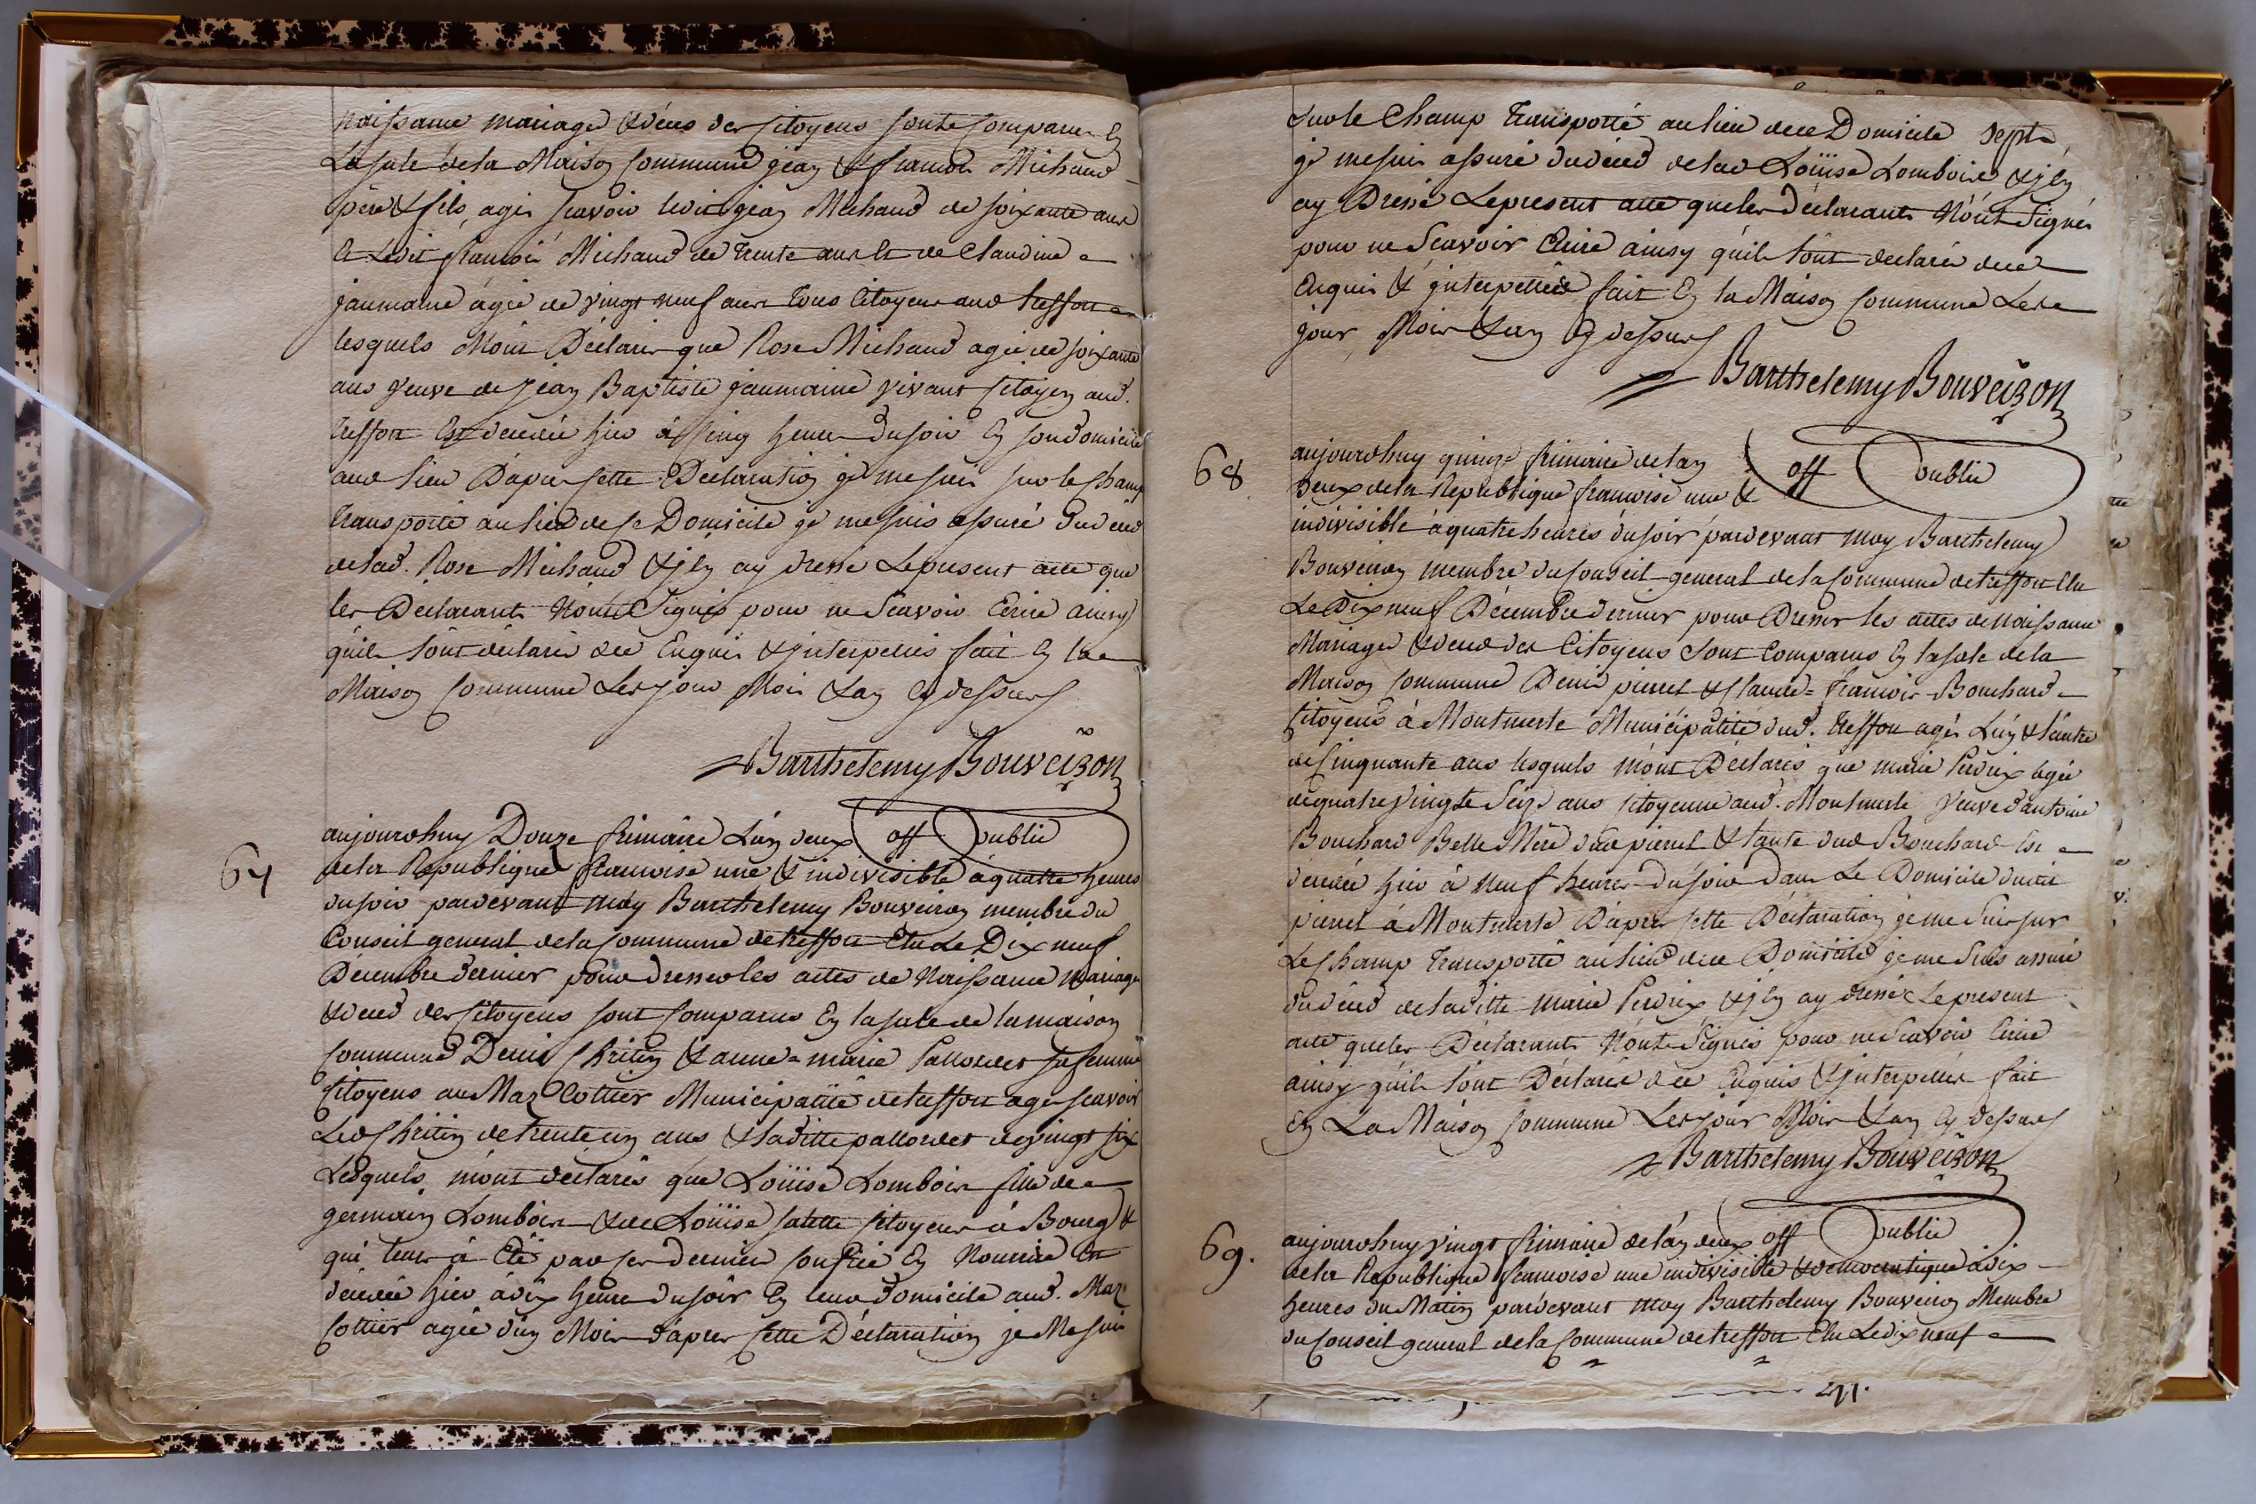 naissance mariage & déces des citoyens sonte comparus En
La sale de la Maison Commune jean & francois Michaud
père & fils agés scavoir ledit jean Michaud de soixante ans
& Ledit francois Michaud de trente ans Et de Claudine
jaumaine agée de vingt neuf ans tous Citoyens aud treffort
lesquels M'ont Déclarés que Rose Michaud agée de soixante
ans veuve de jean Baptiste jaumaine vivant citoyen aud.
treffort Est decedée hier à cinq heures du soir En son domicile
aud lieu D'après cette Déclaration je me suis sur le champ
transporté au lieu de ce Domicile je me suis assuré du déces
de lad. Rose Michaud & j'En ay dressé Le present acte que
les Declarants N'onte Signés pour ne Scavoir Ecrire ainsy
quils sont déclarés de ce Enquis & jnterpellés fait En la
Maison Commune Les jour Mois & an Cy dessus
Barthelemy Bouveiron
off public
67
aujourdhuy Douze frimaire L'an deux
de la Republique francoise une & indivisible à quatre heures
du soir pardevant moy Barthelemy Bouveiron membre du
Conseil general de la Commune de treffort Elu Le Dix neuf
Décembre dernier pour dresser les actes de Naissance Mariage
& déces des citoyens sont comparus En la sale de la maison
Commune Denis Chritin & anne = marie pallordet sa femme
Citoyens au Mas Cottier Municipalité de treffort agés scavoir
Led Chritin de trente un ans & laditte pallordet de vingt six
Lesquels m'ont déclarés que Loüise Lomboin fille de
germain Lomboin & de Loüise salette citoyens à Bourg &
qui leur à Eté par ces derniers confiée En Nourrice Est
décedée hier à dix heures du soir En leur domicile aud. Mas
Cottier agée d'un Mois d'après cette Déclaration je Me suis
sur le Champ transporté au lieu de ce Domicile
je me suis assuré du déces de lad Loüise Lomboin & j'En
ay Dressé Le present acte que les Déclarants N'ont Signés
pour ne Scavoir Ecrire ainsy qu'ils sont declarés de ce
Enquis & jnterpellés fait En la Maison Commune Les
jour Mois & an Cy dessus
Barthelemy Bouveiron
off public
68
aujourdhuy quinze frimaire de l'an
deux de la Republique francoise une &
indivisible à quatre heures du soir pardevant moy Barthelemy
Bouveiron membre du Conseil general de la Commune de treffort Elu
Le Dix neuf Décembre dernier pour Dresser les actes de Naissance
Mariage & déces des Citoyens sont Comparus En la sale de la
Maison Commune Denis pierrel & Claude = francois Bouchard
Citoyens à Montmerle Municipalité dud. treffort agés L'un & l'autre
de Cinquante ans lesquels m'ont Déclarés que marie perdrix agée
de quatre vingte Seize ans citoyenne aud. Montmerle veuve d'antoine
Bouchard Belle Mère dud pierrel & tante dud Bouchard Est
décedée hier à Neuf heures du soir dans Le Domicile dudit
pierrel à Montmerle D'après cette Déclaration je me Suis sur
Le Champ transporté au lieu de ce Domicile je me Suis assuré
du déces de laditte marie perdrix & j'En ay dressé Le present
acte que les Déclarants N'onte Signés pour ne Scavoir Ecrire
ainsy qu'ils sont Déclarés de ce Enquis & jnterpellés fait
En La Maison Commune Les jour Mois & an Cy dessus
Barthelemy Bouveiron
off public
69.
aujourdhuy vingt frimaire de l'an deux
de la Republique francoise une indivisible & democratique à dix
heures du Matin pardevant moy Barthelemy Bouveiron Membre
du Conseil general de la Commune de treffort Elu Le dix neuf